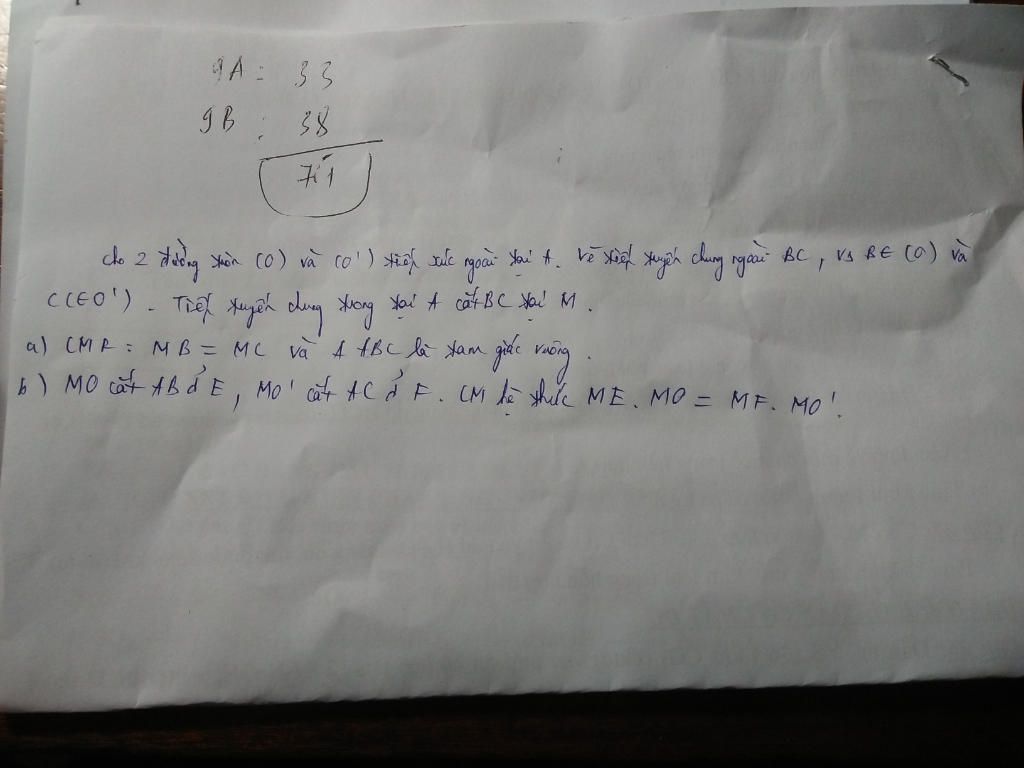 9A : 33
9B : 38
71
Cho 2 đường tròn (O) và (O') tiếp xúc ngoài tại A. Vẽ tiếp tuyến chung ngoài BC, vs B ∈ (O) và
C (∈ O'). Tiếp tuyến chung trong tại A cắt BC tại M.
a) CMR : MB = MC và Δ ABC là tam giác vuông.
b) MO cắt AB ở E, MO' cắt AC ở F. CM hệ thức ME. MO = MF. MO'.